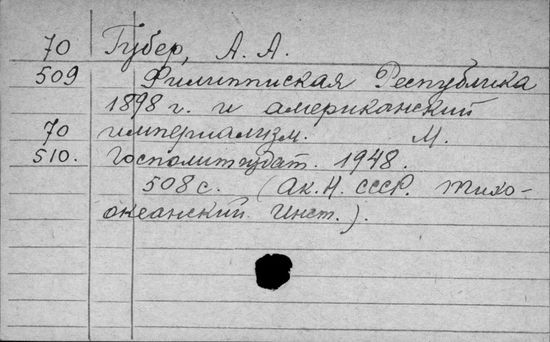 70 Губер, А. А.
509 Филиппиская Республика
1898 г. и американский
70 империализм. М.
510. Госполитиздат. 1948.
508 с. (Ак. Н. СССР. Тихо-
океанский Инст.).